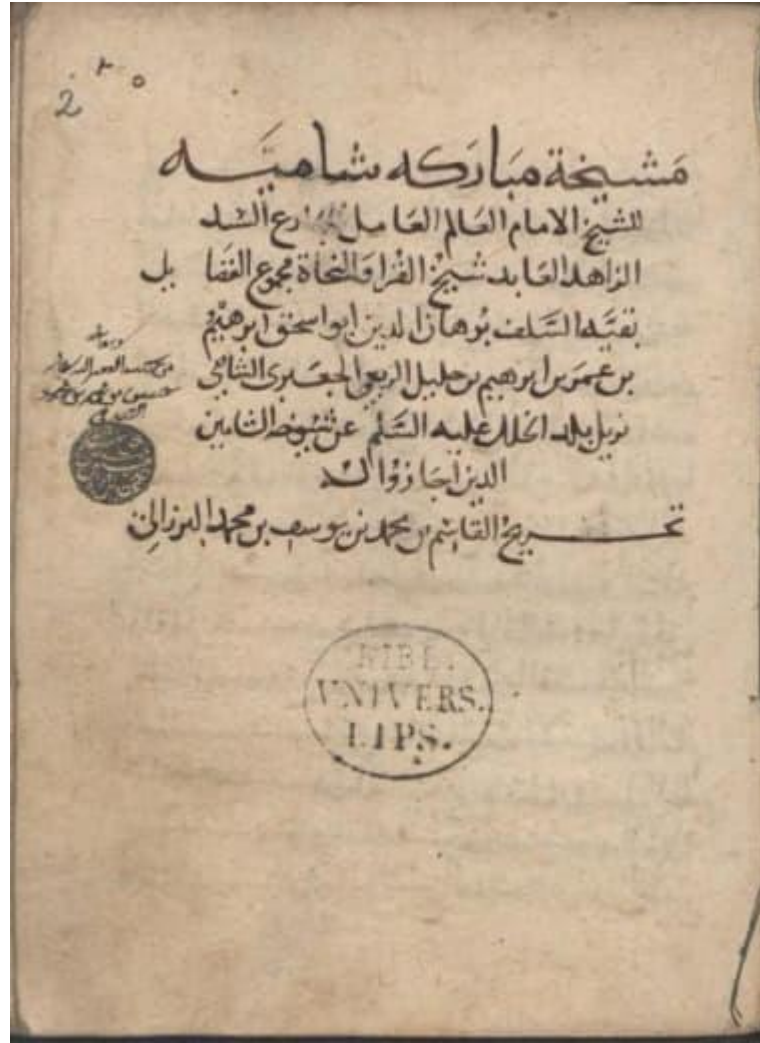 ٢٠٥
مَشيخة مبَارَكه شاميَّه
للشيخ الامام العَالم العَامل السيد
الزاهد العَابد شيخ القرا والنحاة مجموع الفضا يل
بقيَّه السَّلف برهان الدين ابو اسحق ابرهيم
بن عمر بن ابرهيم بن خليل الربعي الجعبرى الشافعي
نزيل بلد الخليل عليه السَّلم عن شيوخه الشاميين
الذين اجازوا له
تخريج القاسم بن محمد بن يوسف بن محمد البرزالي
BIBL.
VNIVERS.
LIPS.